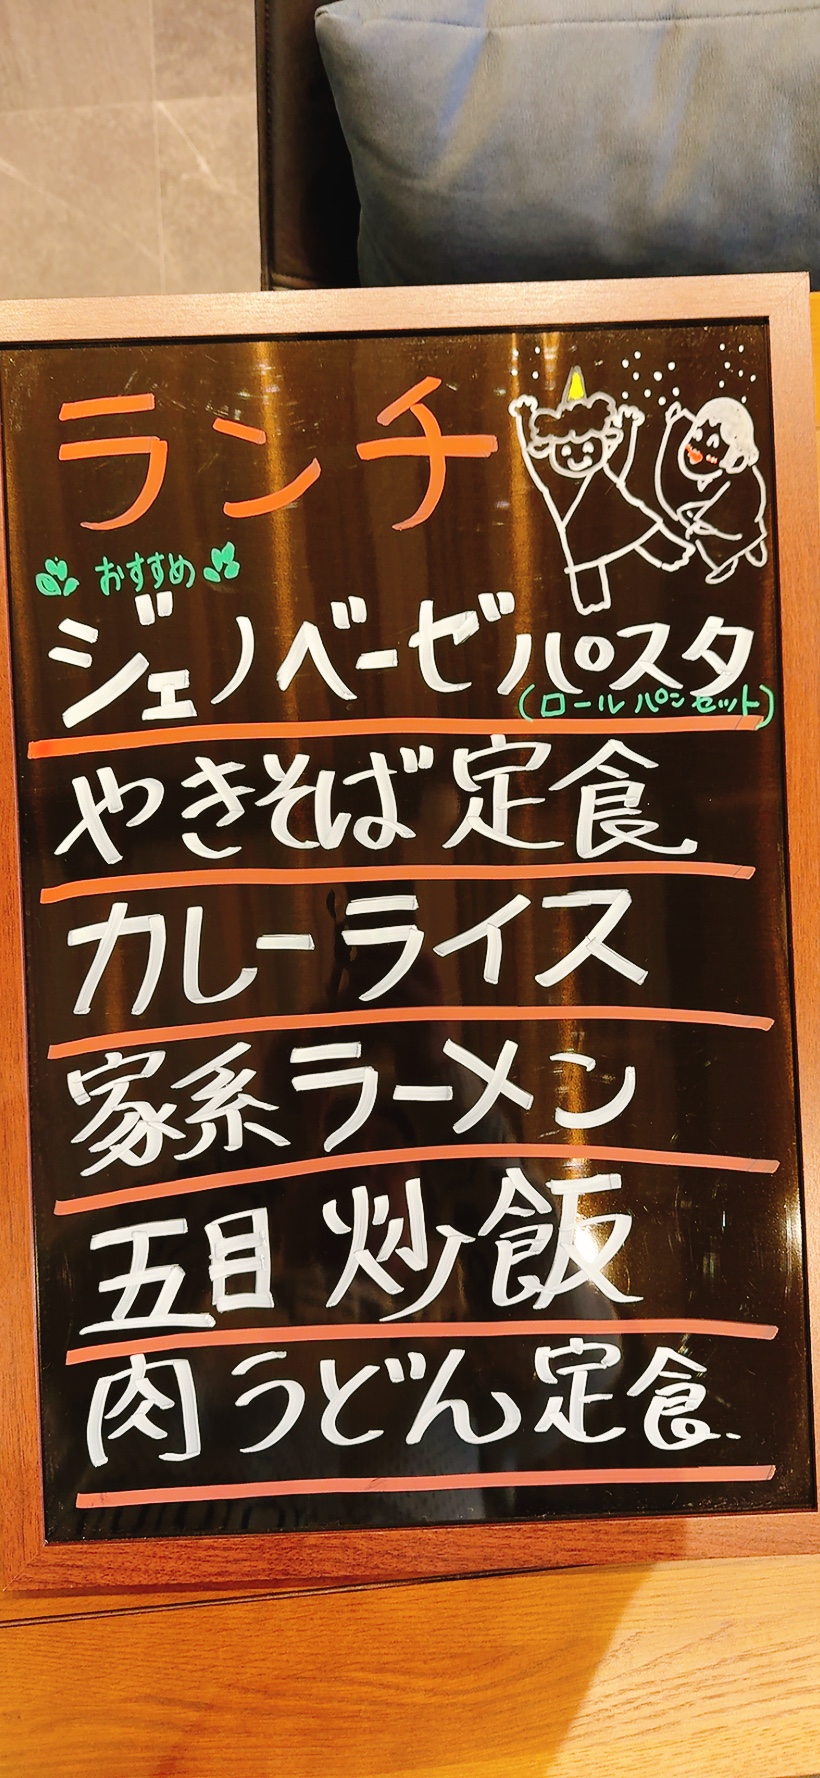 ランチ
おすすめ
ジェノベーゼパスタ
(ロールパンセット)
やきそば定食
カレーライス
家系ラーメン
五目炒飯
肉うどん定食